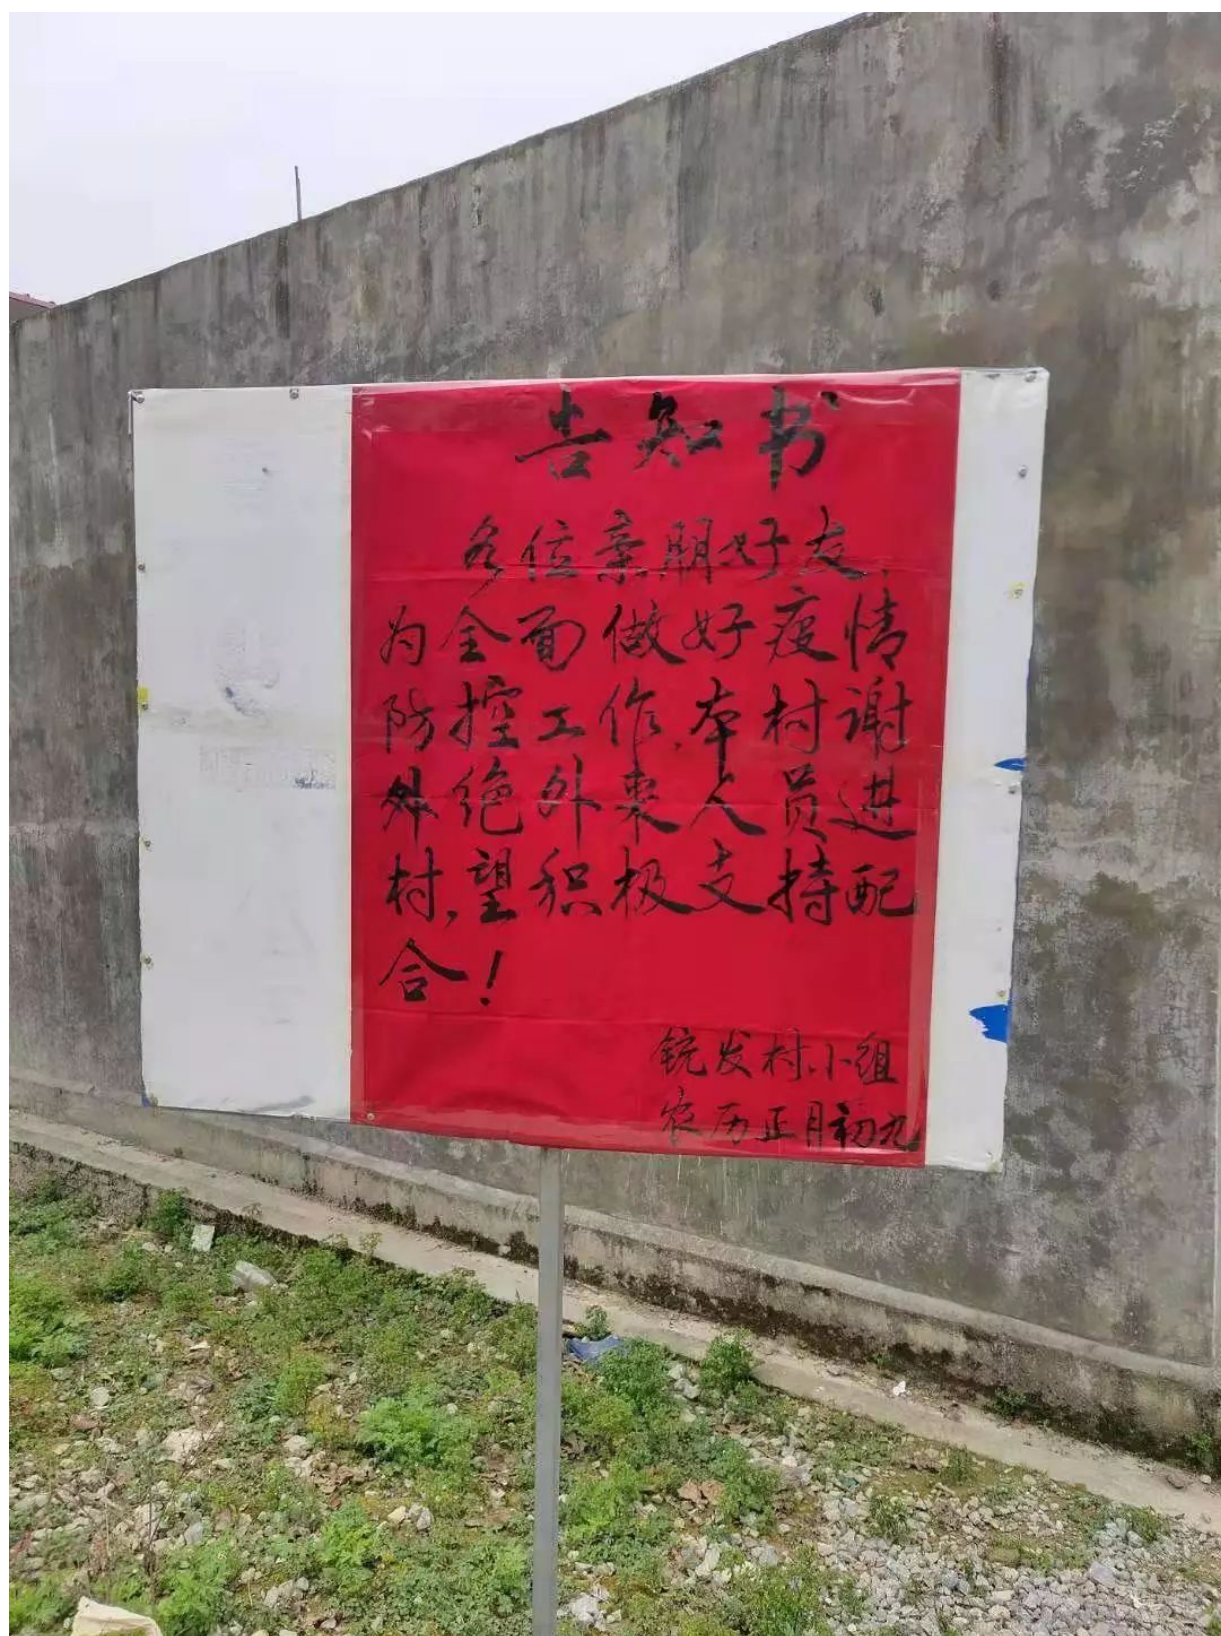 告知书
各位亲朋好友,
为全面做好疫情
防控工作,本村谢
绝外来人员进
村,望积极支持配
合!
铳发村小组
农历正月初九